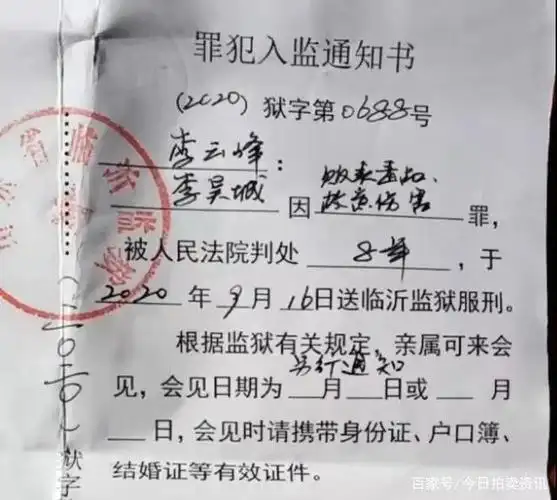 罪犯入监通知书
(2020) 狱字第0688号
李云峰:
李昊城 因 贩卖毒品、
故意伤害 罪,
被人民法院判处 8年 ,于
2020 年 9 月 16日送临沂监狱服刑。
根据监狱有关规定,亲属可来会
另行通知
见,会见日期为 月 日或 月
日,会见时请携带身份证、户口簿、
结婚证等有效证件。
省临沂监狱
(二〇二〇)
狱字
百家号/今日拍梁资讯